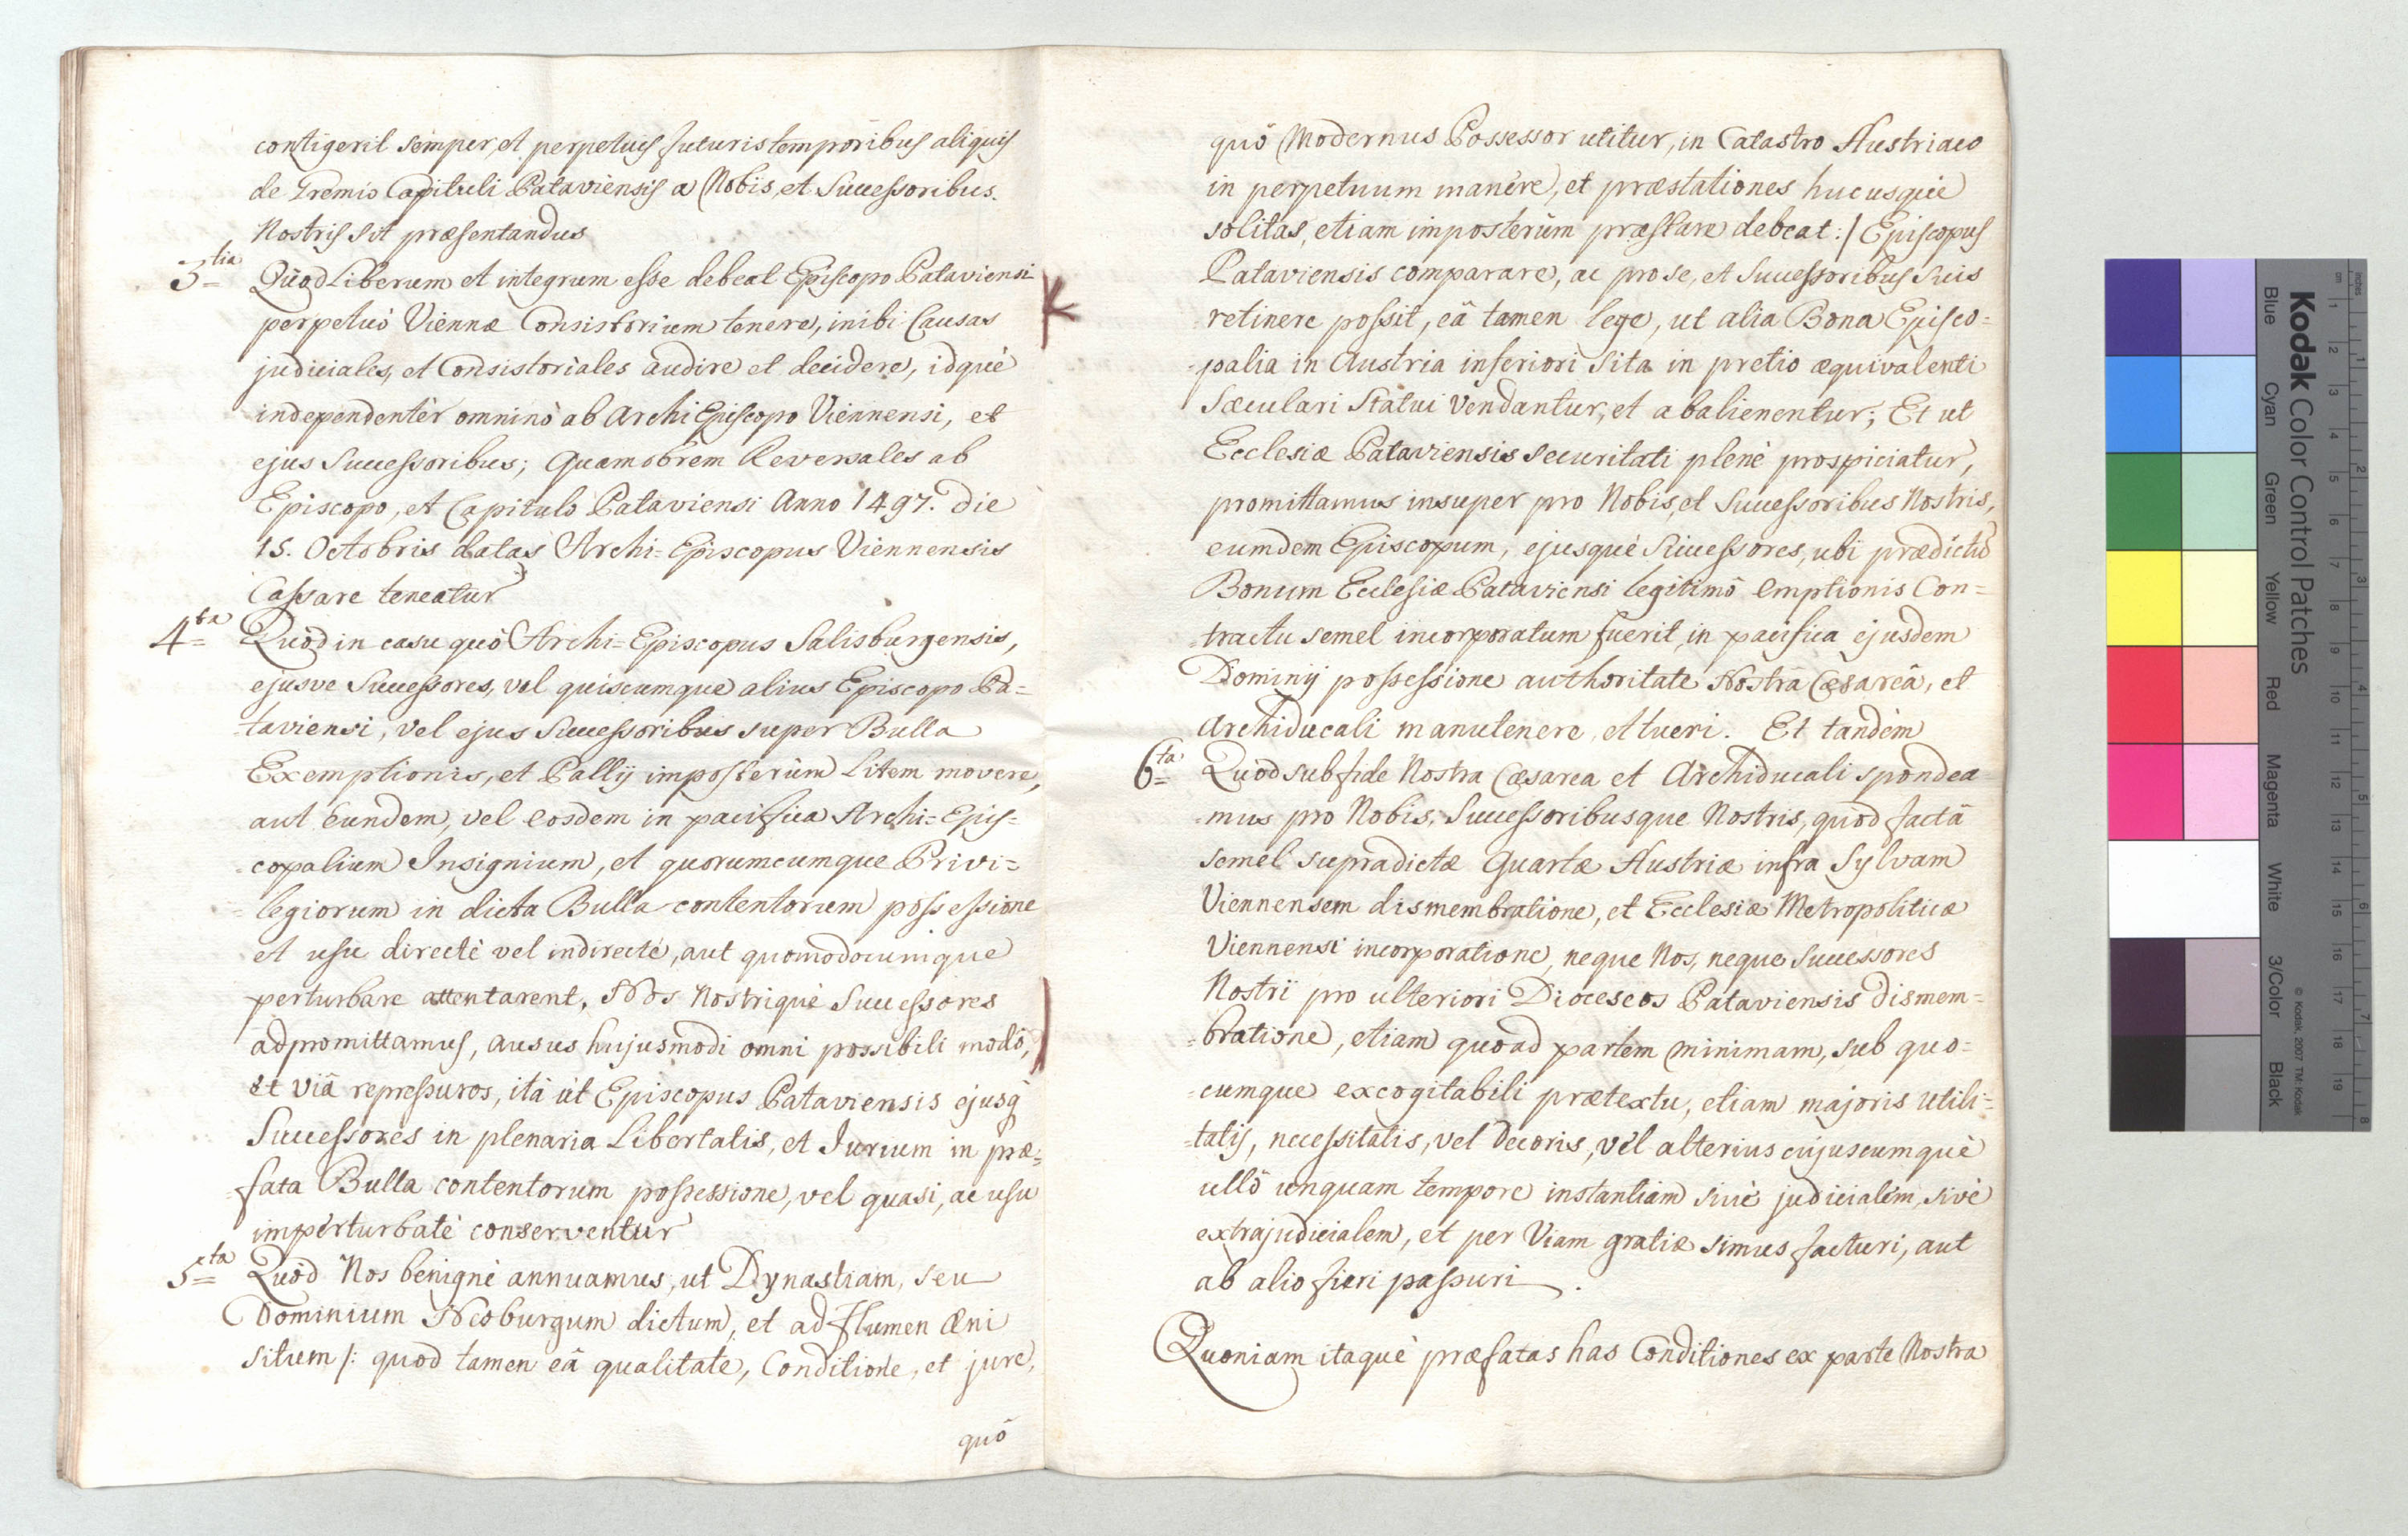 contigerit semper, et perpetuis futuris temporibus aliquis
de Gremio Capituli Pataviensis a Nobis, et Successoribus
Nostris sit præsentandus
3tia Quòd Liberum et integrum esse debeat Episcopo Pataviensi
perpetuò Viennæ Consistorium tenere, inibi Causas
judiciales, et Consistoriales audire et decidere, idquè
independentèr omninò ab Archi Episcopo Viennensi, et
ejus Successoribus; Quamobrem Reversales ab
Episcopo, et Capitulo Pataviensi Anno 1497. die
15. Octobris datas Archi-Episcopus Viennensis
Cassare teneatur
4ta Quòd in casu quò Archi-Episcopus Salisburgensis,
ejusve Successores, vel quiscumque alius Episcopo Pa=
taviensi, vel ejus Successoribus super Bulla
Exemptionis, et Pallij imposterùm Litem movere,
aut Eundem, vel eosdem in pacifica Archi-Epis=
=copalium Insignium, et quorumcumque Privi=
=legiorum in dicta Bulla contentorum possessione
et usu directè vel indirectè, aut quomodocumque
perturbare attentarent, Nos Nostriquè Successores
adpromittamus, ausus hujusmodi omni possibili modô,
et viâ repressuros, ità ùt Episcopus Pataviensis ejusq̀
Successores in plenaria Libertatis, et Jurium in præ=
=fata Bulla contentorum possessione, vel quasi, ac usu
imperturbatè conserventur
5ta Quòd Nos benignè annuamus, ut Dynastiam, seu
Dominium Neoburgum dictum, et ad flumen Æni
situm /: quod tamen eâ qualitate, Conditione, et jure,
quô
quô Modernus Possessor utitur, in Catastro Austriaco
in perpetuum manere, et præstationes hucusquè
solitas, etiam imposterùm præstare debeat :/ Episcopus
Pataviensis comparare, ac pro se, et Successoribus Suis
retinere possit, eâ tamen lege, ut alia Bona Episco=
=palia in Austria inferiori sita in pretio æquivalenti
Sæculari Statui Vendantur, et abalienentur; Et ut
Ecclesiæ Pataviensis securitati plenè prospiciatur,
promittamus insuper pro Nobis, et Successoribus Nostris,
eumdem Episcopum, ejusquè Successores, ubi prædictũ
Bonum Ecclesiæ Pataviensi legitimô Emptionis Con=
=tractu semel incorporatum fuerit, in pacifica ejusdem
Dominij possessione authoritate Nostrâ Cæsareâ, et
Archiducali manutenere, et tueri. Et tandèm
6ta Quòd sub fide Nostra Cæsarea et Archiducali spondea
=mus pro Nobis, Successoribusque Nostris, quòd factâ
semel supradictæ Quartæ Austriæ infra Sylvam
Viennensem dismembratione, et Ecclesiæ Metropoliticæ
Viennensi incorporatione, neque Nos, neque Successores
Nostri pro ulteriori Dioeceseos Pataviensis dismem=
=bratione, etiam quoad partem minimam, sub quo=
=cumque excogitabili prætextu, etiam majoris utili=
=tatis, necessitatis, vel Decoris, vel alterius cujuscumquè
ullô unquam tempore instantiam sivè judicialem, sivè
extrajudicialem, et per Viam gratiæ simus facturi, aut
ab alio fieri passuri.
Quoniam itaquè præfatas has Conditiones ex parte Nostra
Kodak Color Control Patches
Blue Cyan Green Yellow Red Magenta White 3/Color Black
© Kodak, 2007 TM: Kodak
cm 1 2 3 4 5 6 7 8 9 10 11 12 13 14 15 16 17 18 19
inches 1 2 3 4 5 6 7 8